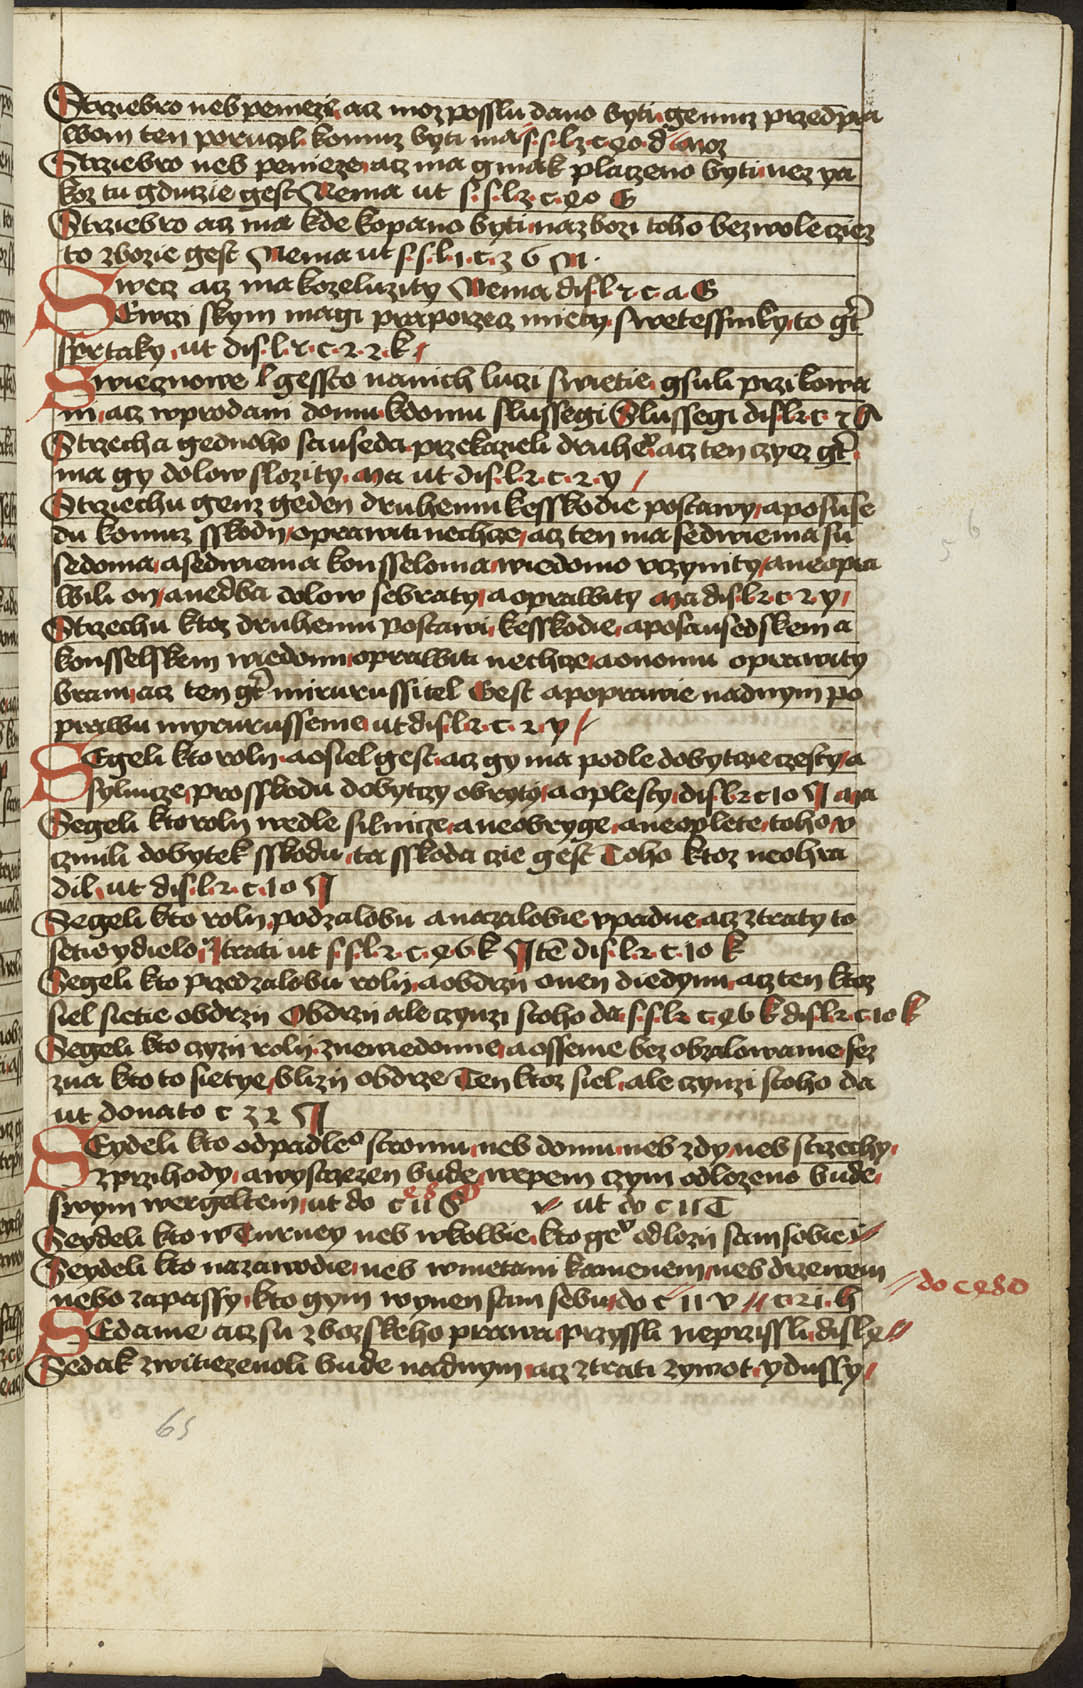 Strziebro neb penieze acz moz posslu dano byti gemuz przed pra
wem ten poruczl komuz byti ma s.s.l2.c.40.d. moz
Strziebro neb penieze acz ma gmak placzeno byti nez ya
koz tu gduzie gest Nema ut s.s.l2.c.40 G
Strziebro acz ma kde kopano byti na zbozi toho bez wole cziez
to zbozie gest Nema ut s.s.l.1.c.36 M.
Swecz acz ma kozeluzity Nema dis.l.2.c.a G
SEwczi skym magi praporzecz miety swetessniky to gt
ssrtaky ut dis.l.2.c.2.2.k
Swiecznowe l gessto nanich luczi swietie gsuli przikowa
ni acz wprodani domu kdomu slussegi Slussegi dis.l2.c.2 A
Strzecha gednoho sauseda przekazieli druheo acz ten czyez gt
ma gy dolow slozity Ma ut dis.l.2.c.2.y
Strziechu genz geden druhemu kesskodie postawy aposuse
du komuz sskodn oprawiti nechcze acz ten ma sedwiema su
sedoma asedwiema konsseloma wiedomo vczynity aneopra
wili on anedba dolow sebraty a oprawity Ma dis.l2.c.2.y
Strzechu ktoz druhemu postawi kesskodie aposausedskem a
konsselskem wiedomi oprawiti nechcze aonomu oprawity
brani acz ten gt miru russitel Gest apoprawie nadnym po
prawu myru russeme ut dis.l2.c.2.y
SEgeli kto roly aosiel gest acz gy ma podle dobytcze czesty a
sylnicze pro sskodu dobytczy obryty a oplesty dis.l2.c.10 Ma
Segeli kto roly wedle silnicze aneobryge aneoplete toho v
czinili dobytek sskodu ta sskoda czie gest Toho ktoz neohra
dil ut dis.l.2.c.10
Segeli kto roly podzalobu anazalobie vpadne acz ztraty to
setie ydielo Ztrati ut s.s.l2.c.46.k Ite dis.l2.c.10 k
Segeli kto przedzalobu roly aobdrzy onen diedynu acz ten ktoz
siel sietie obdrzy Obdrzy ale czynzi stoho da s.s.l2 c.46 k dis.l2.c.10 k
Segeli kto czyzy roly zneewedomie aosseme bez obzalowanie sez
zna kto to sietye blizy obdrze Ten ktoz siel ale czynzi stoho da
ut donato c 32
SEydeli kto odpadleo stromu neb domu neb zdy neb strzechy
zprzihody awystrzezen bude wepem czym odlozeno bude
swym wergeltem ut do c 11 S ut do c 11 T
Seydeli kto wTurney neb wkolbie kto geo odlozy sam sobie
Seydeli kto nazawodie neb wmetani kamenem neb drzewem
nebo zapassy kto gym wynen sam sebu do c 11 v c.21.h
do c 48 d
SEdanie acz su zbozskeho prawa przyssli neprzissli dis.l4
Sedlak zwitiezenoli bude nadnym acz ztrati zywot ydussy
65